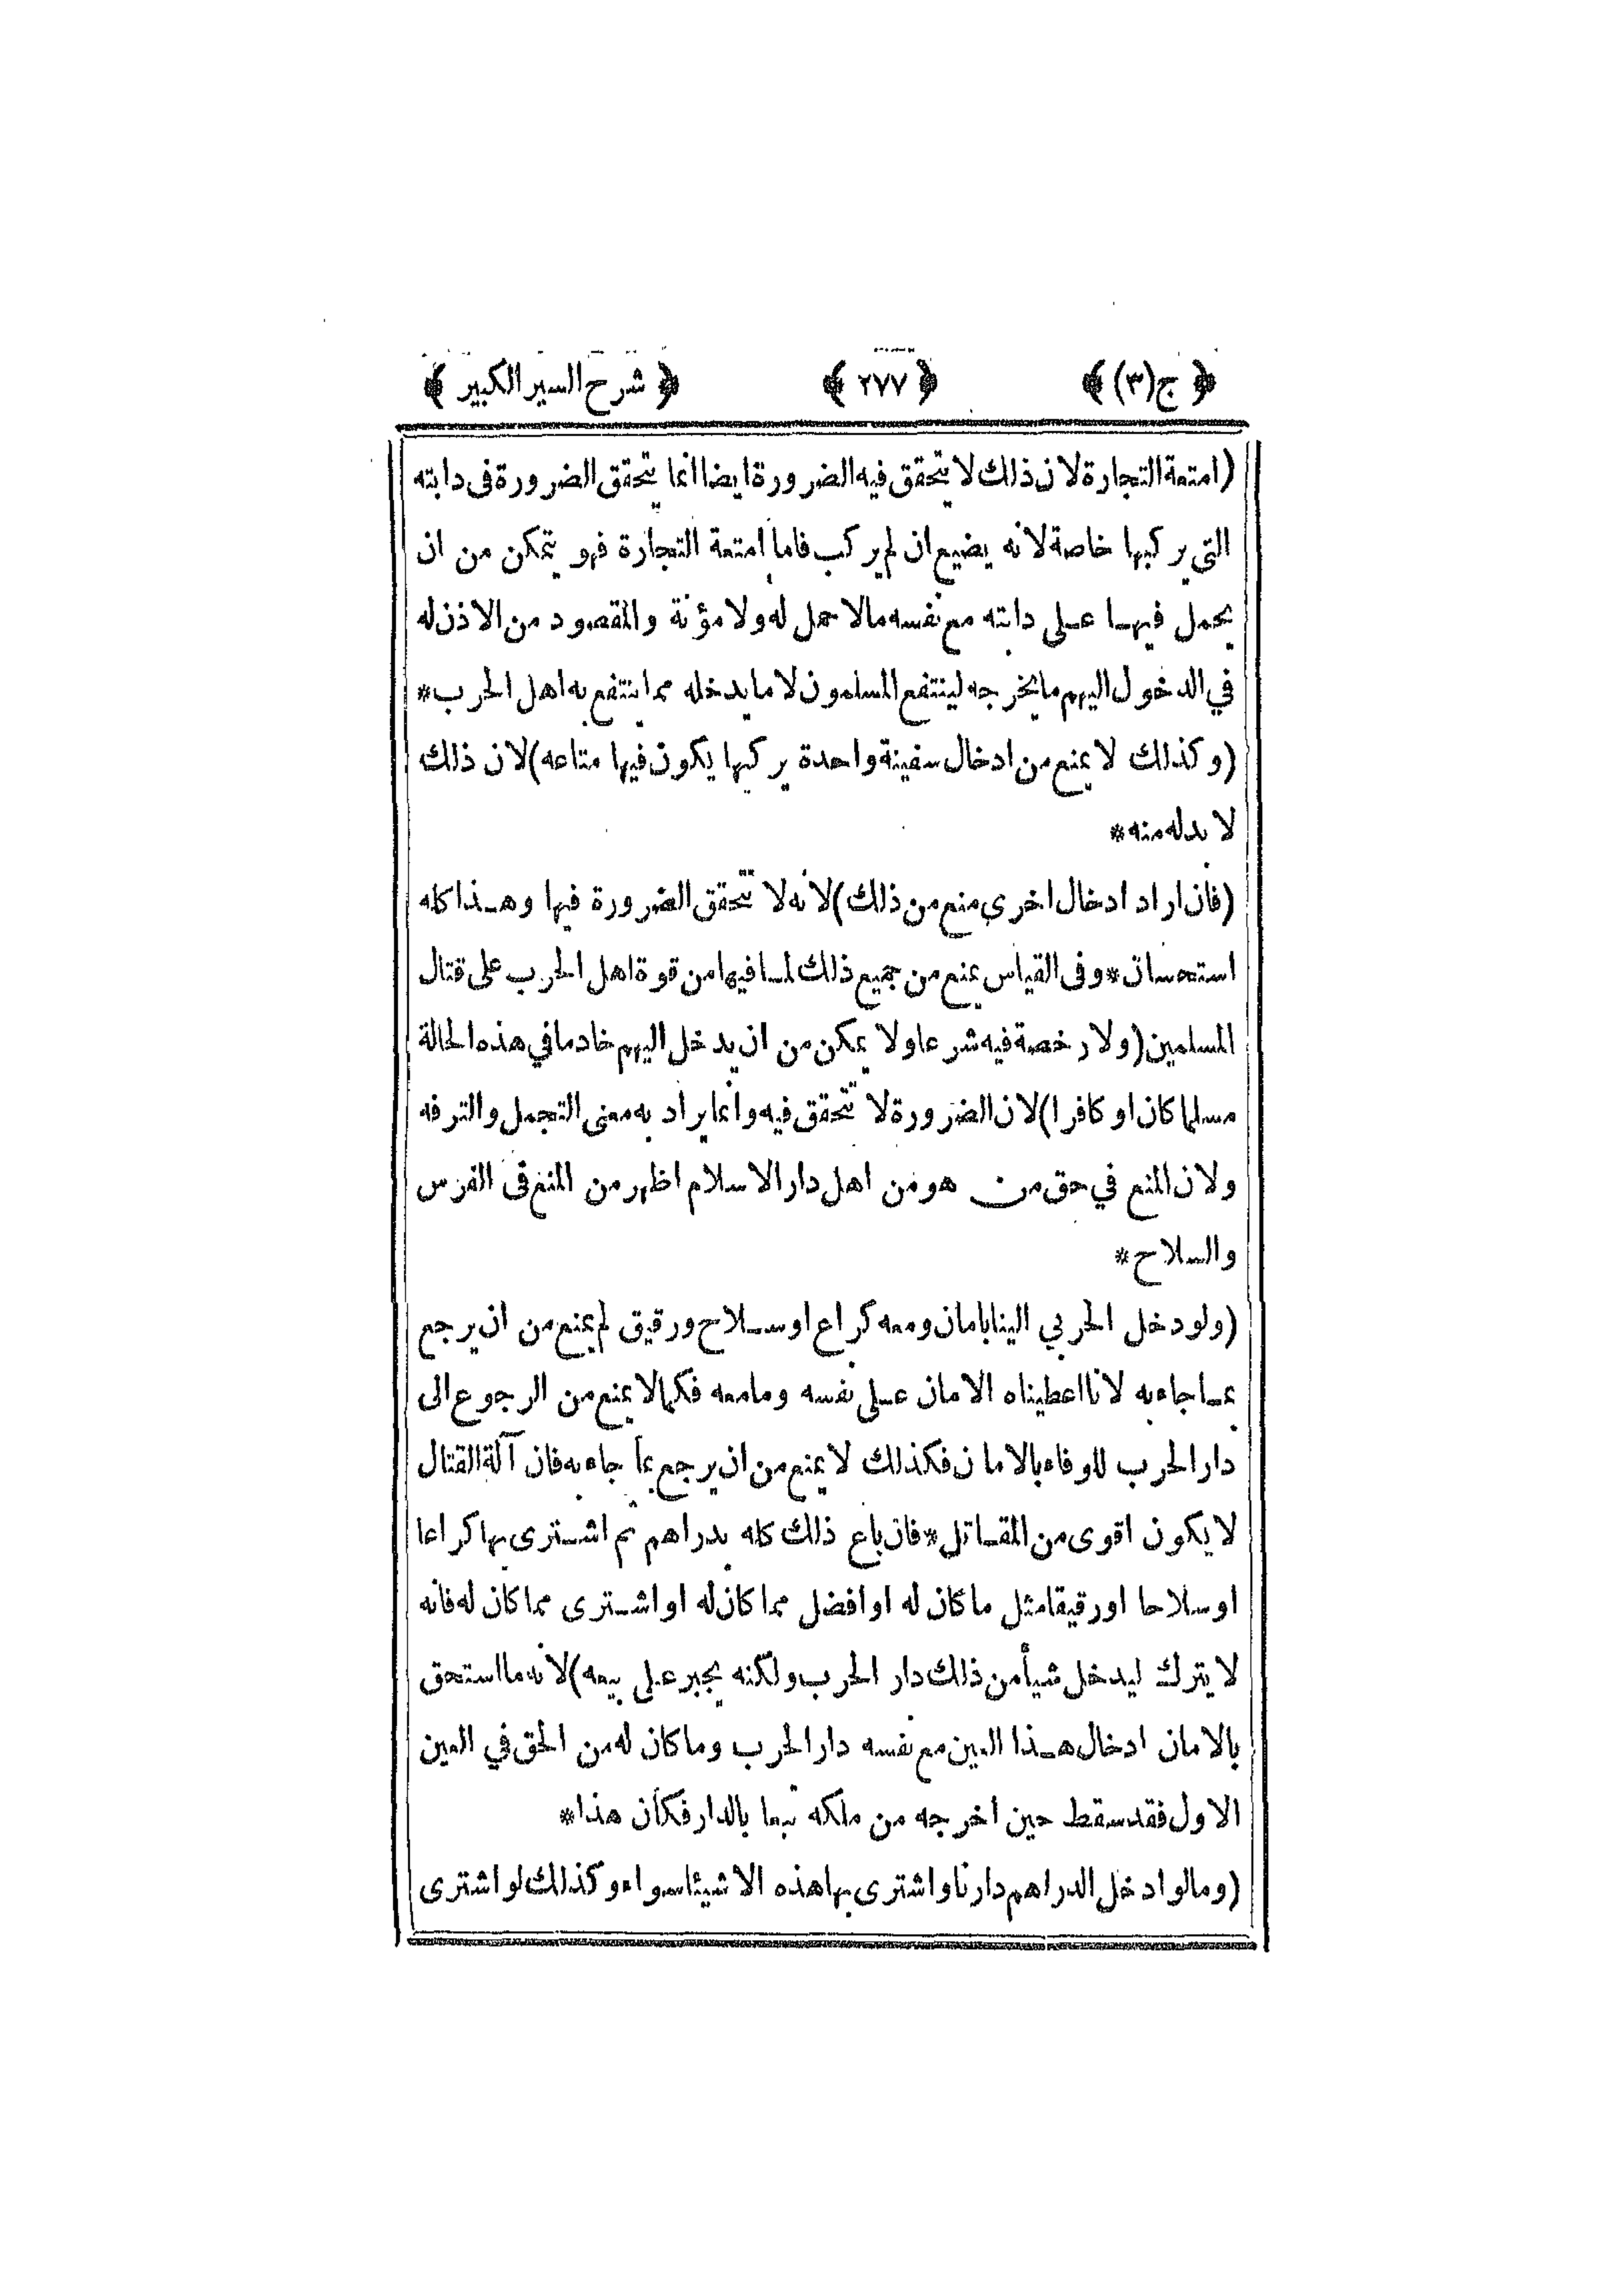 ﴿ ج(٣) ﴾ ﴿ ٢٧٧ ﴾ ﴿ شرح السير الكبير ﴾
(امتعة التجارة لان ذلك لا يتحقق فيه الضرورة ايضا انما يتحقق الضرورة فى دابته
التى يركبها خاصة لانه يضيع ان لم يركب فاما امتعة التجارة فهو يتمكن من ان
يحمل فيها على دابته مع نفسه مالا حمل له ولا مؤنة والمقصود من الاذن له
في الدخول اليهم ما يخرجه لينتفع المسلمون لا ما يدخله مما ينتفع به اهل الحرب*
(وكذلك لا يمنع من ادخال سفينة واحدة يركبها يكون فيها متاعه) لان ذلك
لا بد له منه*
(فان اراد ادخال اخرى منع من ذلك) لانه لا تتحقق الضرورة فيها وهذا كله
استحسان*وفى القياس يمنع من جميع ذلك لما فيها من قوة اهل الحرب على قتال
المسلمين (ولا رخصة فيه شرعا ولا يمكن من ان يدخل اليهم خادما في هذه الحالة
مسلما كان او كافرا) لان الضرورة لا تتحقق فيه وانما يراد به معنى التجمل والترفه
ولان المنع في حق من هو من اهل دار الاسلام اظهر من المنع فى الفرس
والسلاح*
(ولو دخل الحربي الينا بامان ومعه كراع او سلاح ورقيق لم يمنع من ان يرجع
بما جاء به لانا اعطيناه الامان على نفسه وما معه فكما لا يمنع من الرجوع الى
دار الحرب للوفاء بالامان فكذلك لا يمنع من ان يرجع بما جاء به فان آلة القتال
لا يكون اقوى من المقاتل*فان باع ذلك كله بدراهم ثم اشترى بها كراعا
او سلاحا او رقيقا مثل ما كان له او افضل مما كان له او اشترى مما كان له فانه
لا يترك ليدخل شيأ من ذلك دار الحرب ولكنه يجبر على بيعه) لانه ما استحق
بالامان ادخال هذا العين مع نفسه دار الحرب وما كان له من الحق في العين
الاول فقد سقط حين اخرجه من ملكه تبعا بالدار فكأن هذا*
(وما لو ادخل الدراهم دارنا واشترى بها هذه الاشيئا سواء وكذلك لو اشترى